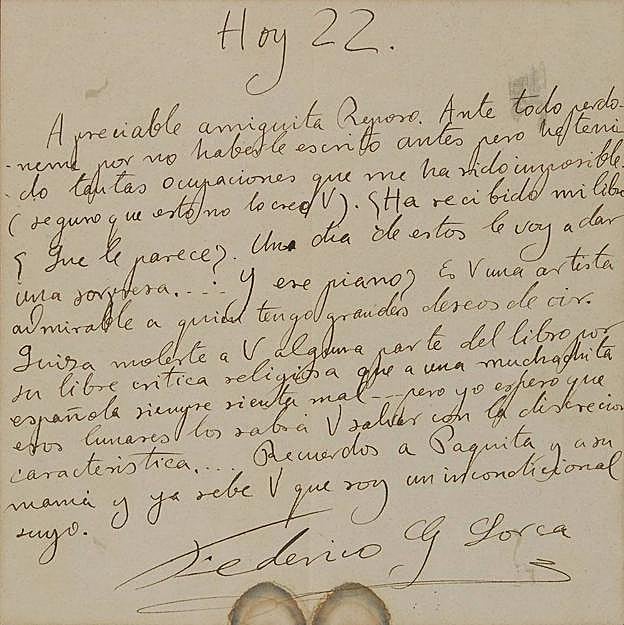 Hoy 22.
Apreciable amiguita Reposo. Ante todo perdo-
-neme por no haberle escrito antes pero he teni
-do tantas ocupaciones que me ha sido imposible.
(seguro que esto no lo cree V). ¿Ha recibido mi libro
¿Que le parece?. Un dia de estos le voy a dar
una sorpresa..... Y ese piano? Es V una artista
admirable a quien tengo grandes deseos de oir.
Quiza moleste a V alguna parte del libro por
su libre critica religiosa que a una muchachita
española siempre sienta mal... pero yo espero que
esos lunares los sabrá V salvar con la discrecion
caracteristica.... Recuerdos a Paquita y a su
mamá y ya sebe V que soy un incondicional
suyo.
Federico G Lorca